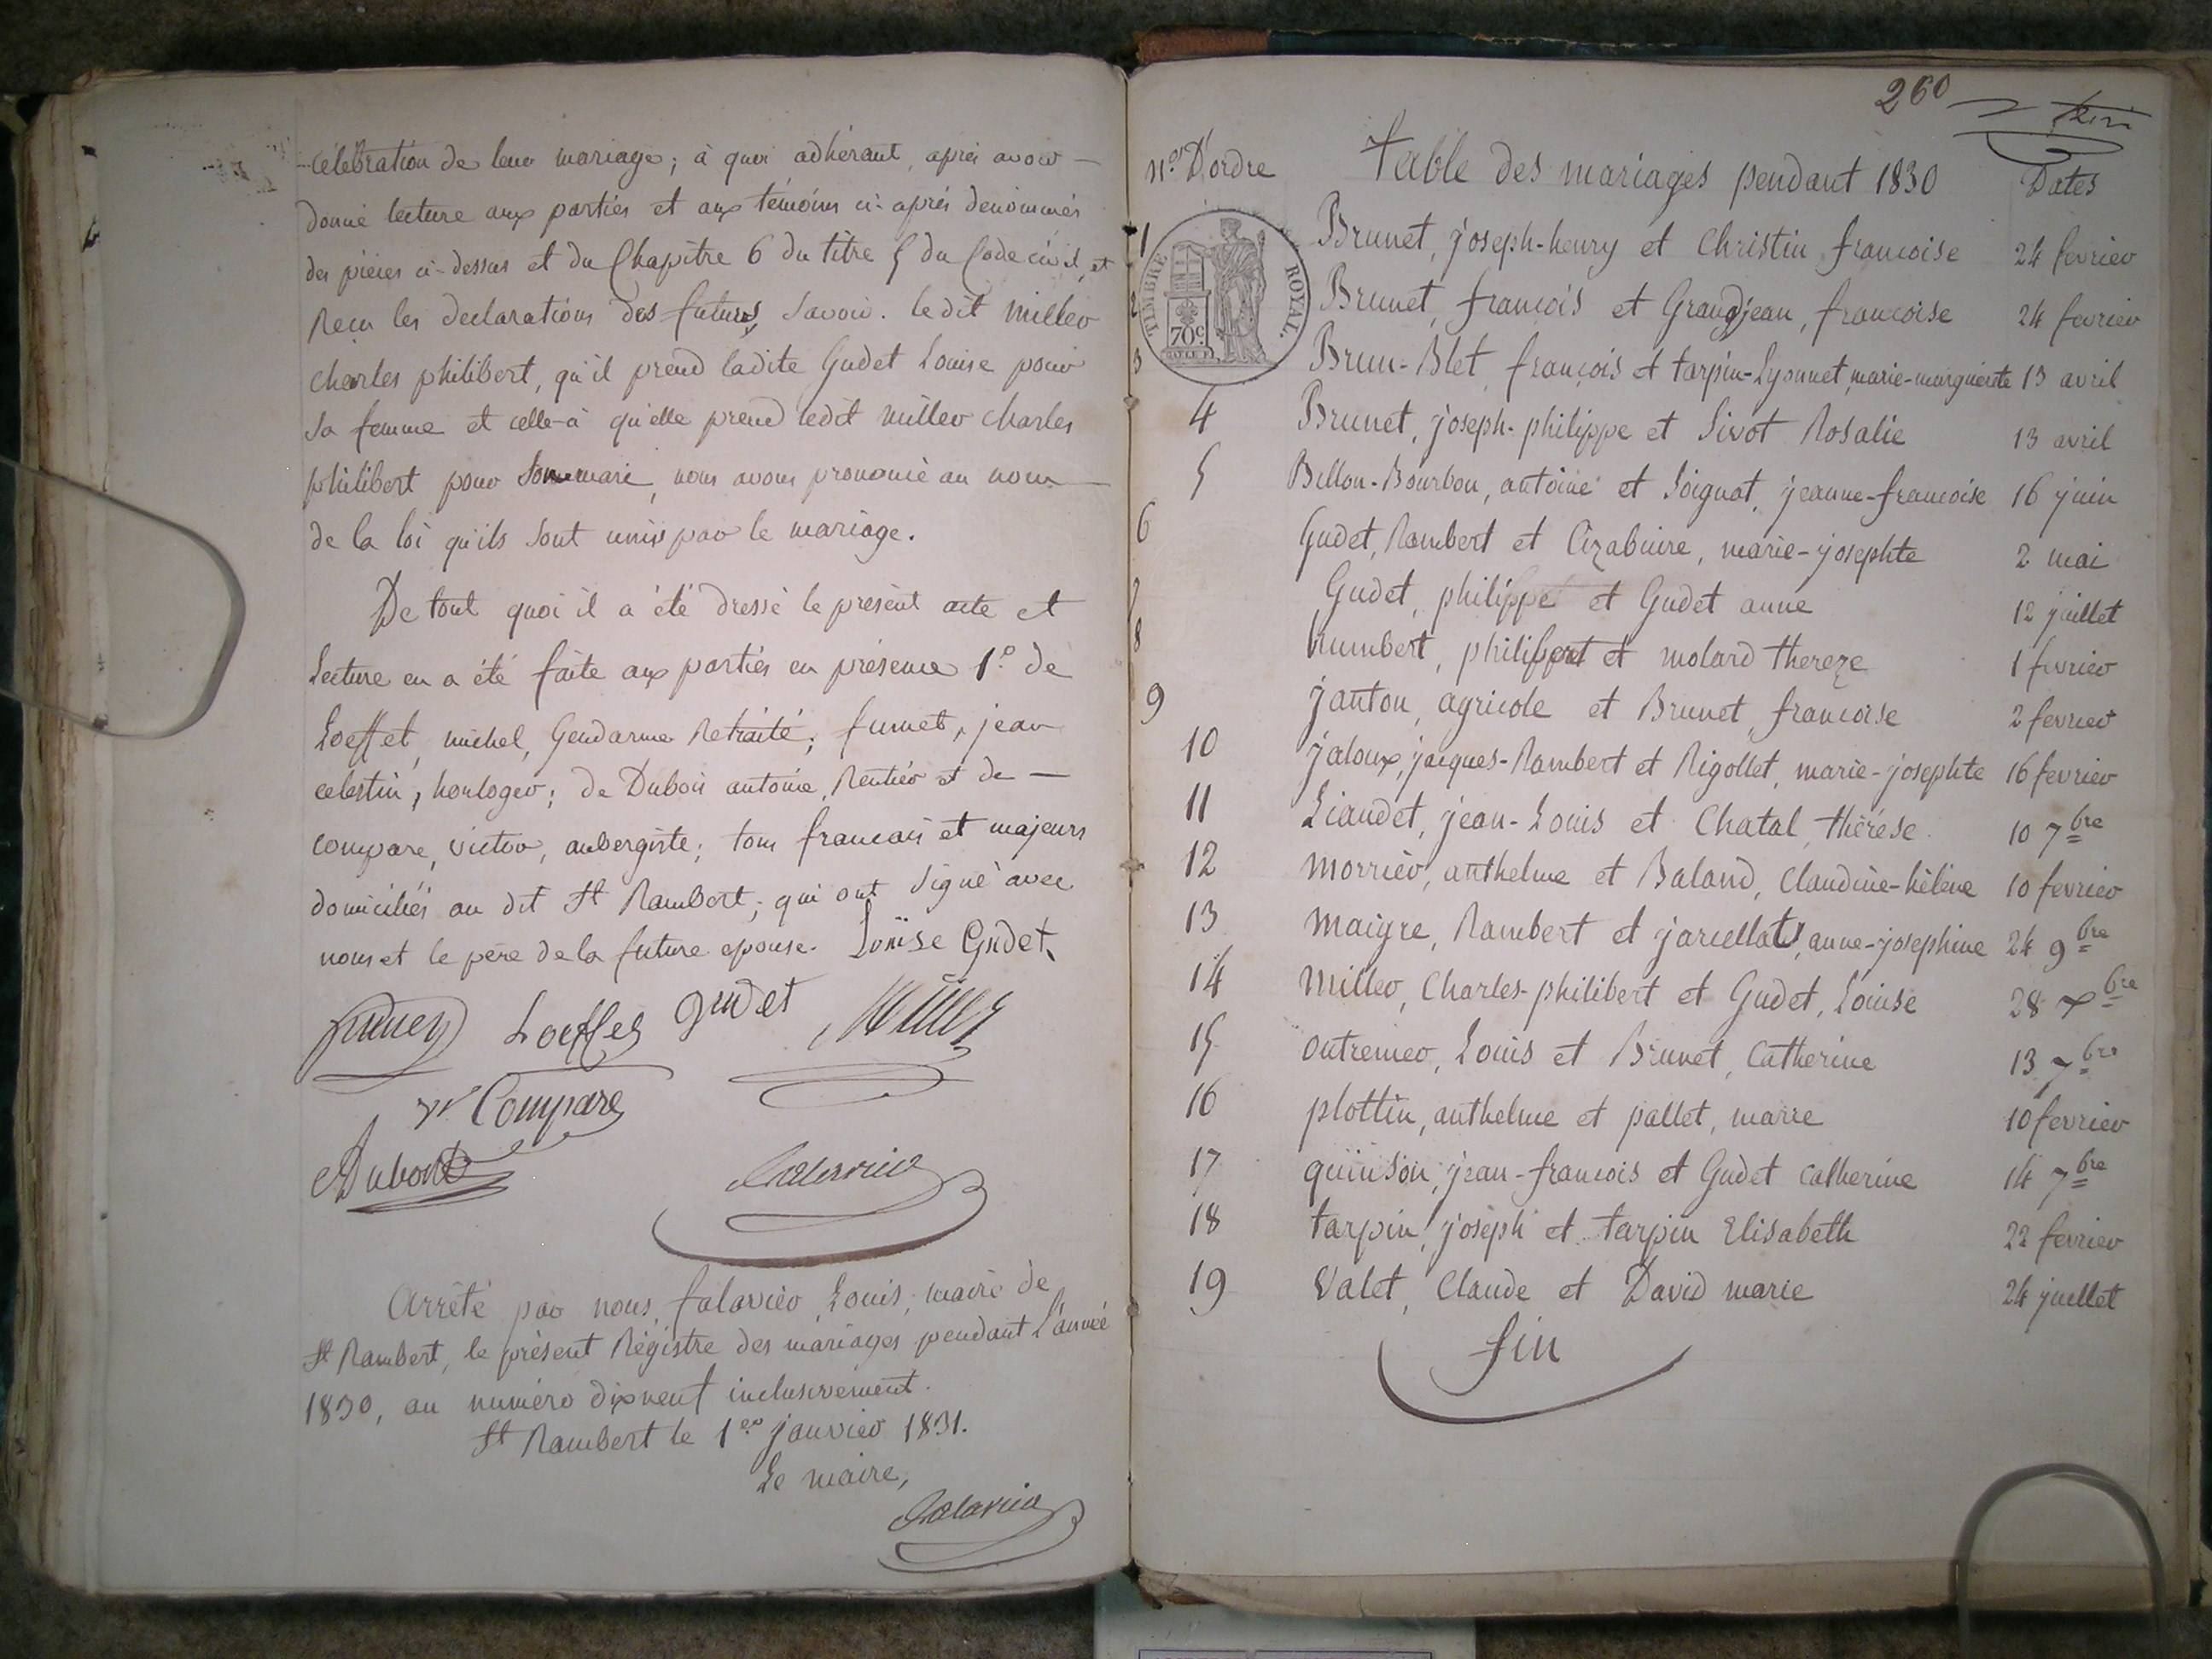 célébration de leur mariage; à quoi adhérant, après avoir
donné lecture aux parties et aux témoins ci-après dénommés
des pièces ci-dessus et du Chapitre 6 du titre 5 du Code civil, et
Reçu les declarations des futurs, Savoir. ledit miller
charles philibert, qu'il prend ladite Gudet Louise pour
sa femme et celle-ci qu'elle prend ledit miller charles
philibert pour son mari, nous avons prononcé au nom
de la loi qu'ils sont unis par le mariage.
De tout quoi il a été dressé le présent acte et
Lecture en a été faite aux parties en présence 1.º de
Loeffel, michel, Gendarme Retraité; fumet, jean
celestin, horloger; de Dubois antoine, Rentier et de
compare, victor, aubergiste; tous francais et majeurs
domiciliés au dit St Rambert; qui ont Signé avec
nous et le père de la future epouse. Louise Gudet
Loeffel Gudet Miller
Compare
ADubois
falavier
Arrêté par nous, falavier, Louis, maire de
St Rambert, le présent Régistre des mariages pendant l'année
1830, au numéro dixneuf inclusivement.
St Rambert le 1er janvier 1831.
Le maire,
falavier
260
nos D'ordre Table des mariages pendant 1830 Dates
TIMBRE ROYAL.
70c
1 Brunet, joseph-henry et Christin francoise 24 fevrier
2 Brunet, francois et Grandjean, francoise 24 fevrier
3 Brun-Blet, françois et tarpin-Lyonnet, marie-marguerite 13 avril
4 Brunet, joseph-philippe et Sivot Rosalie 13 avril
5 Billon-Bourbon, antoine et Loignat, jeanne-francoise 16 juin
6 Gudet, Rambert et Cizabuire, marie-josephte 2 mai
7 Gudet, philippe et Gudet anne 12 juillet
8 humbert, philibert et molard thereze 1 fevrier
9 janton, agricole et Brunet, francoise 2 fevrier
10 jaloux, jacques-Rambert et Rigollet, marie-josephte 16 fevrier
11 Liaudet, jean-Louis et Chatal, thérése. 10 7bre
12 morrier, anthelme et Baland, Claudine-hélène 10 fevrier
13 maigre, Rambert et jarcellat, anne-josephine 24 9bre
14 Miller, Charles-philibert et Gudet, Louise 28 xbre
15 outremer, Louis et Brunet, Catherine 13 7bre
16 plottin, anthelme et pallet, marie 10 fevrier
17 quinson, jean-francois et Gudet catherine 14 7bre
18 tarpin, joseph et tarpin Elisabeth 22 fevrier
19 Valet, Claude et David marie 24 juillet
fin